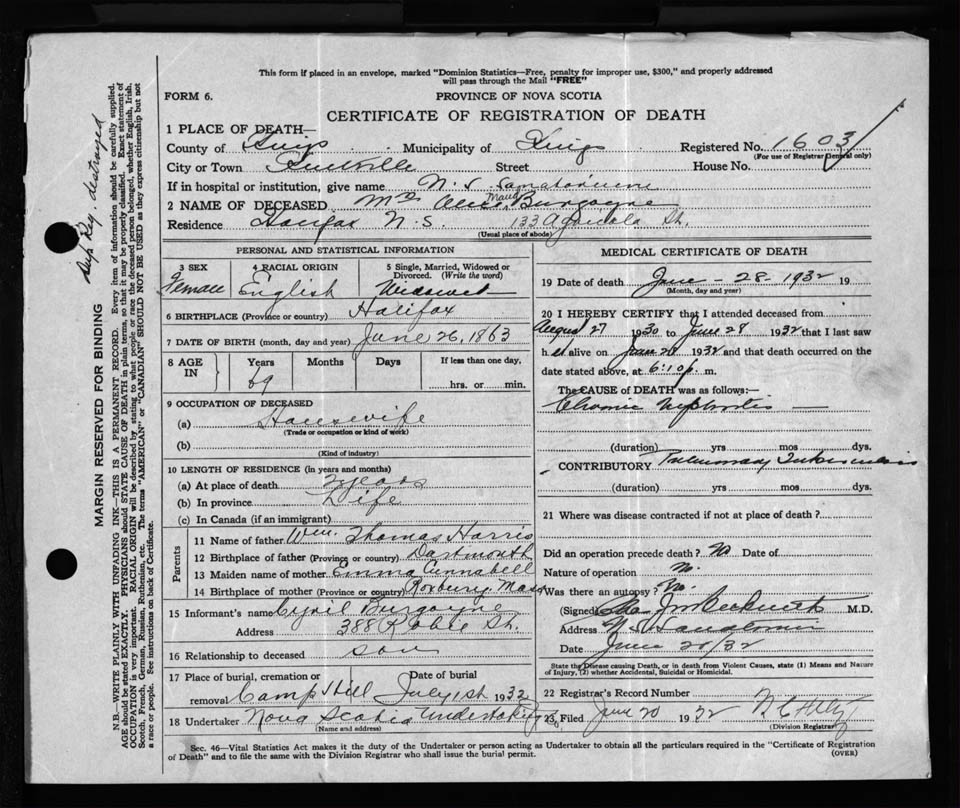 This form if placed in an envelope, marked "Dominion Statistics—Free, penalty for improper use, $300," and properly addressed
will pass through the Mail "FREE"
FORM 6.
PROVINCE OF NOVA SCOTIA
CERTIFICATE OF REGISTRATION OF DEATH
1 PLACE OF DEATH—
County of Kings Municipality of Kings Registered No. 1603
(For use of Registrar General only)
City or Town Kentville Street House No.
If in hospital or institution, give name N. S. Sanatorium
2 NAME OF DECEASED Mrs Alice Maud Burgoyne
Residence Halifax N. S. 133 Agricola St.
(Usual place of abode)
PERSONAL AND STATISTICAL INFORMATION
3 SEX Female
4 RACIAL ORIGIN English
5 Single, Married, Widowed or Divorced. (Write the word) Widowed
6 BIRTHPLACE (Province or country) Halifax
7 DATE OF BIRTH (month, day and year) June 26, 1863
8 AGE IN Years Months Days If less than one day,
69 hrs. or min.
9 OCCUPATION OF DECEASED
(a) Housewife
(Trade or occupation or kind of work)
(b)
(Kind of industry)
10 LENGTH OF RESIDENCE (in years and months)
(a) At place of death 2 years
(b) In province Life
(c) In Canada (if an immigrant)
Parents
11 Name of father Wm. Thomas Harris
12 Birthplace of father (Province or country) Dartmouth
13 Maiden name of mother Emma Annabell
14 Birthplace of mother (Province or country) Roxbury Mass
15 Informant's name Cyril Burgoyne
Address 388 Robie St.
16 Relationship to deceased son
17 Place of burial, cremation or removal Camp Hill Date of burial July 1st 1932
18 Undertaker Nova Scotia Undertaking Co.
(Name and address)
MEDICAL CERTIFICATE OF DEATH
19 Date of death June - 28 - 1932 19
(Month, day and year)
20 I HEREBY CERTIFY that I attended deceased from
August 27 1930 to June 28 1932 that I last saw
her alive on June 28 1932 and that death occurred on the
date stated above, at 6:10 p. m.
The CAUSE OF DEATH was as follows:—
Chronic Nephritis —
(duration) yrs mos dys.
CONTRIBUTORY Pulmonary Tuberculosis
(duration) yrs. mos. dys.
21 Where was disease contracted if not at place of death?
Did an operation precede death? No Date of
Nature of operation No.
Was there an autopsy? No.
(Signed) M.D.
Address N S Sanatorium
Date June 28/32
State the Disease causing Death, or in death from Violent Causes, state (1) Means and Nature
of Injury, (2) whether Accidental, Suicidal or Homicidal.
22 Registrar's Record Number
23 Filed June 30 1932
(Division Registrar)
Sec. 46—Vital Statistics Act makes it the duty of the Undertaker or person acting as Undertaker to obtain all the particulars required in the "Certificate of Registration
of Death" and to file the same with the Division Registrar who shall issue the burial permit.
(OVER)
Dup Reg. destroyed
MARGIN RESERVED FOR BINDING
N.B.—WRITE PLAINLY WITH UNFADING INK—THIS IS A PERMANENT RECORD. Every item of information should be carefully supplied.
AGE should be stated EXACTLY. PHYSICIANS should STATE CAUSE OF DEATH in plain terms, so that it may be properly classified. Exact statement of
OCCUPATION is very important. RACIAL ORIGIN will be described by stating to what people or race the deceased person belonged, whether English, Irish,
Scotch, French, German, Russian, Ruthenian, etc. The terms "AMERICAN" or "CANADIAN" SHOULD NOT BE USED as they express citizenship but not
a race or people. See instructions on back of Certificate.